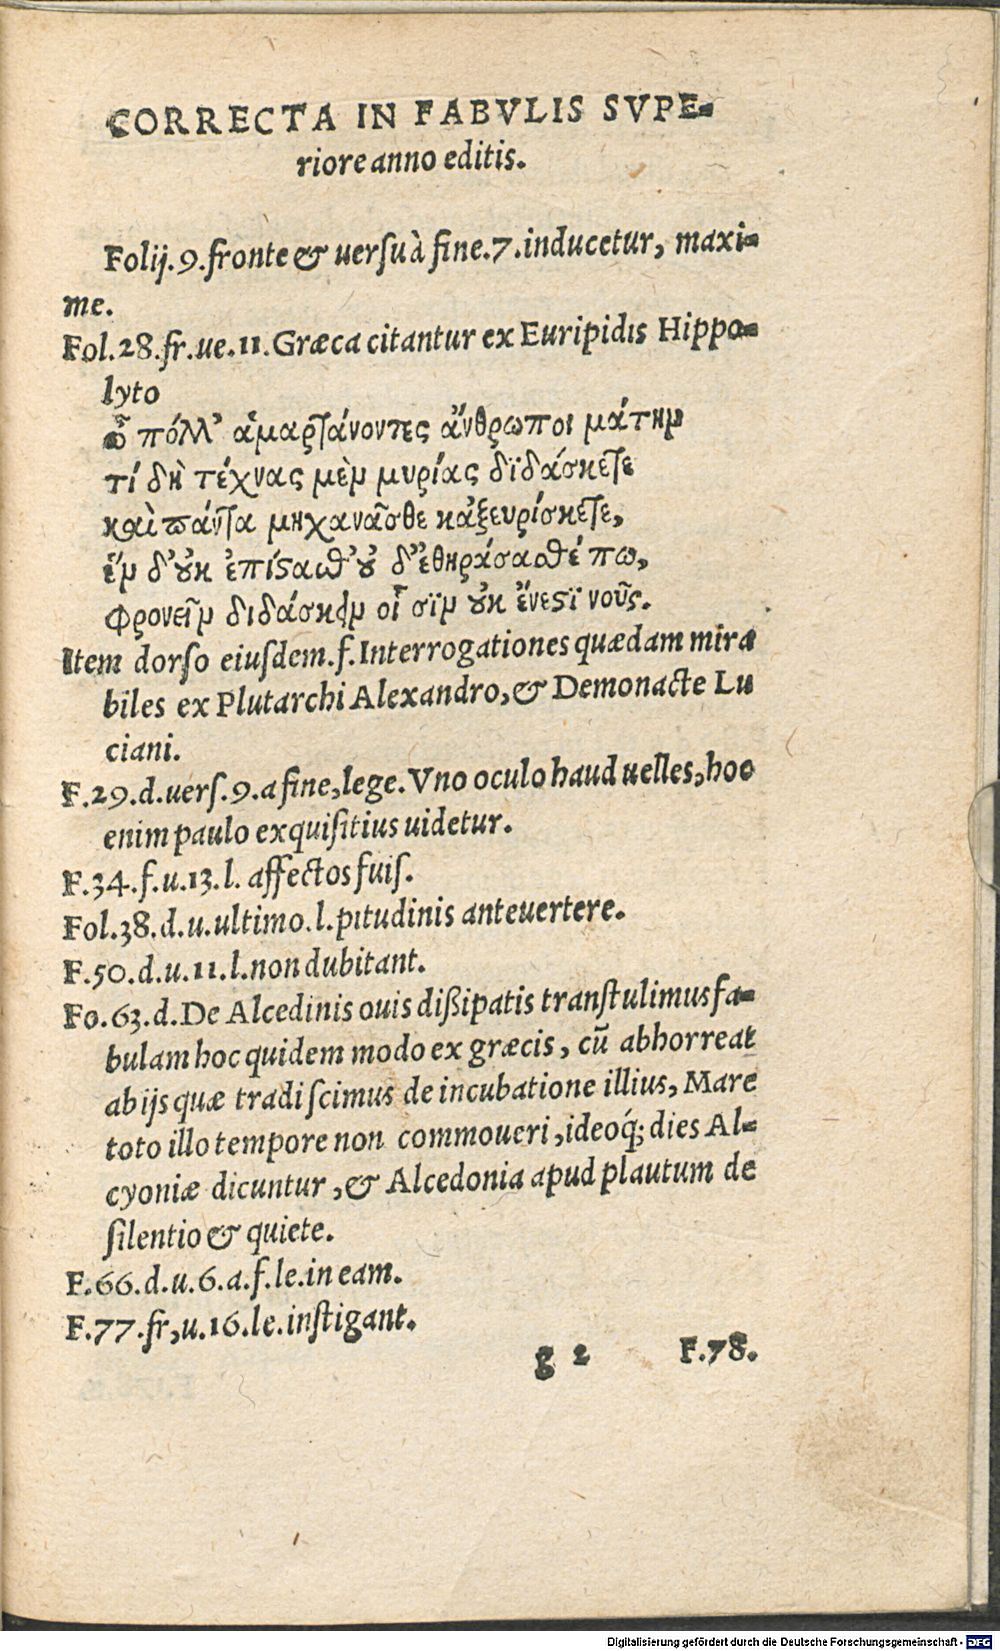 CORRECTA IN FABVLIS SVPE-
riore anno editis.
Folij.9.fronte & uersu à fine.7.inducetur, maxi-
me.
Fol.28.fr.ue.11.Græca citantur ex Euripidis Hippo-
lyto
ὦ πόλλ' ἁμαρτάνοντες ἄνθρωποι μάτην
τί δὴ τέχνας μὲν μυρίας δϊδάσκετε
καὶ πάντα μηχανᾶσθε κἀξευρίσκετε,
ἓν δ' οὐκ ἐπίστασθ' οὐ δ' ἐθηράσασθέ πω,
φρονεῖν διδάσκειν οἷσϊν οὐκ ἔνεστϊ νοῦς.
Item dorso eiusdem.f.Interrogationes quædam mira
biles ex Plutarchi Alexandro, & Demonacte Lu
ciani.
F.29.d.uers.9.a fine,lege.Vno oculo haud uelles,hoc
enim paulo exquisitius uidetur.
F.34.f.u.13.l. affectos fuis.
Fol.38.d.u.ultimo.l.pitudinis anteuertere.
F.50.d.u.11.l.non dubitant.
Fo.63.d.De Alcedinis ouis dißipatis transtulimus fa-
bulam hoc quidem modo ex græcis, cū abhorreat
ab ijs quæ tradi scimus de incubatione illius, Mare
toto illo tempore non commoueri, ideoq́; dies Al-
cyoniæ dicuntur, & Alcedonia apud plautum de
silentio & quiete.
F.66.d.u.6.a.f.le.in eam.
F.77.fr,u.16.le.instigant.
g 2 F.78.
Digitalisierung gefördert durch die Deutsche Forschungsgemeinschaft - DFG